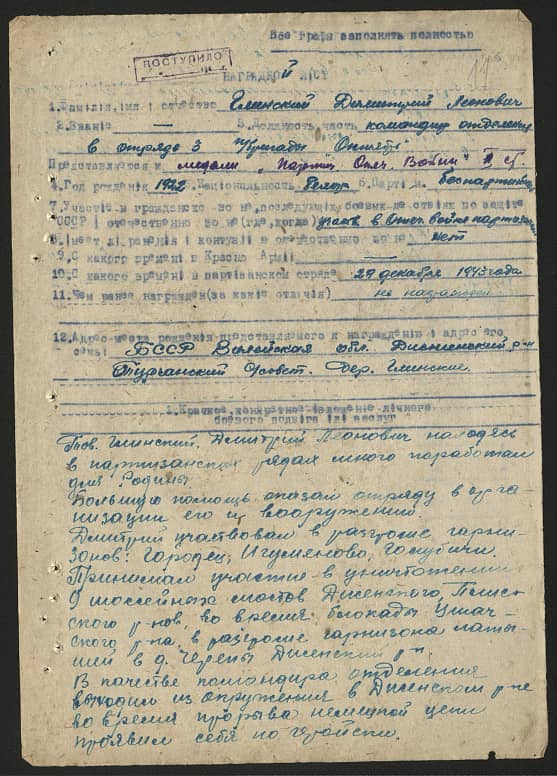 Все графы заполнять полностью
ПОСТУПИЛО
НАГРАДНОЙ ЛИСТ
1.Фамилия,имя и отчество Глинский Димитрий Леонович
2.Звание — 3.Должность,часть командир отделения
в отряде 3 бригады "Октябрь"
Представляется к медали "Партиз. Отеч. Войны" II ст.
4.Год рождения 1922 Национальность белор 6.Парти беспартийный
7.Участие в гражданско во не,последующих боевых действиях по защите
СССР и отечественно во не(где,когда) участв в Отеч войне партизаном
8. Имеет л ранения и контузи в отечественно во не нет
9.С какого времени в Красно Арми —
10.С какого времени в партизанском отряде 29 декабря 1943 года
11.Чем ранее награжден(за какие отличия) не награжден
12.Адрес места рождения представляемого к награждению и адрес его
семьи БССР Вилейская обл. Дисненский р-н
Турчанский с/совет. Дер. Глинские.
1.Краткое,конкретное изложение личного
боевого подвига или заслуг
Тов. Глинский Дмитрий Леонович находясь
в партизанских рядах много поработал
для Родины
Большую помощь оказал отряду в орга-
низации его и вооружений.
Дмитрий участвовал в разгроме гарни-
зонов: Городец, Игуменово, Голубичи.
Принимал участие в уничтожении
9 шоссейных мостов Дисенского,
ского р-нов, во время блокады Ушач-
ского р-на, в разгроме гарнизона латы-
шей в д. Черепы Дисенский р-н.
В качестве командира отделения
выходил из окружения в Дисенском р-не
во время прорыва немецкой цепи
проявил себя по геройски.